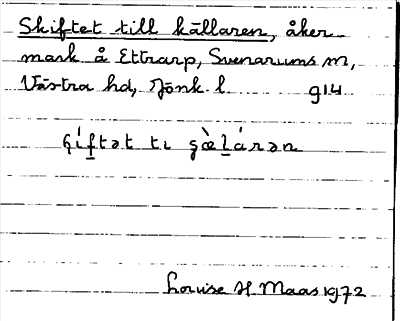 Skiftet till källaren, åker
mark å Ettrarp, Svenarums sn,
Västra hd, Jönk. l. 914
ɕíftət tɩ ɕæ̀lárən
Louise H. Maas 1972